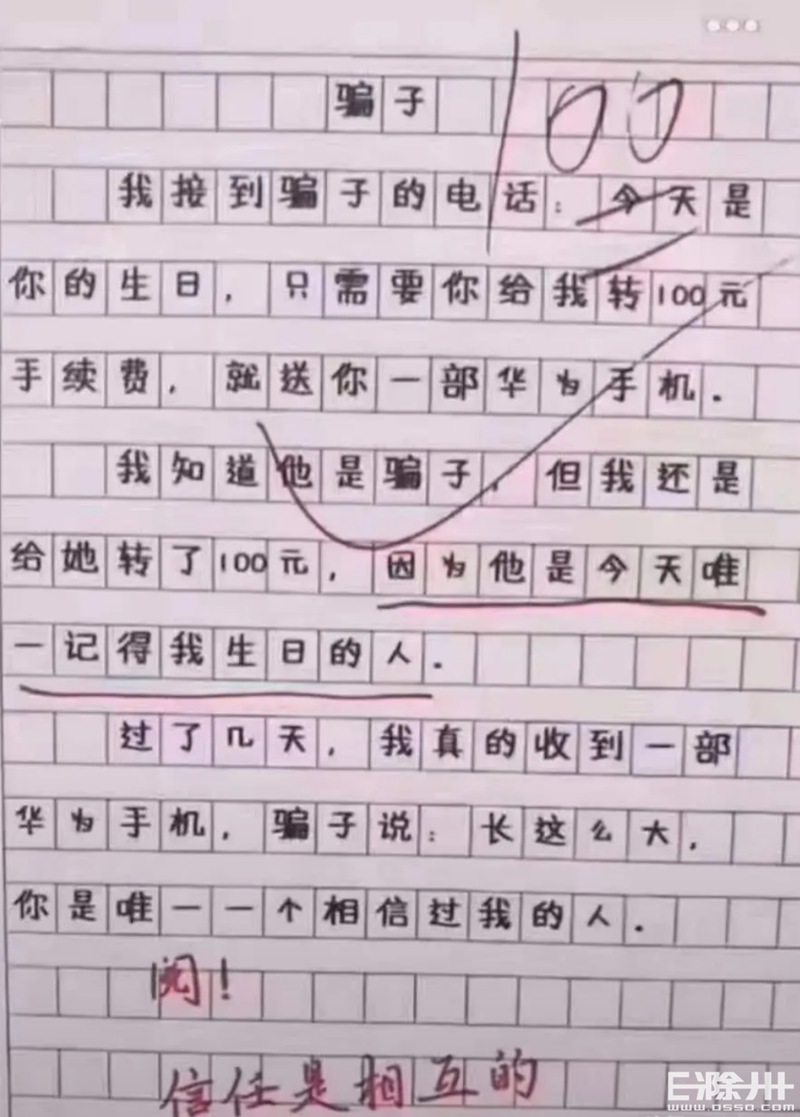 骗子 100
我接到骗子的电话：今天是
你的生日，只需要你给我转100元
手续费，就送你一部华为手机．
我知道他是骗子，但我还是
给她转了100元，因为他是今天唯
一记得我生日的人．
过了几天，我真的收到一部
华为手机，骗子说：长这么大，
你是唯一一个相信过我的人．
阅！
信任是相互的
E滁州
www.0550.com